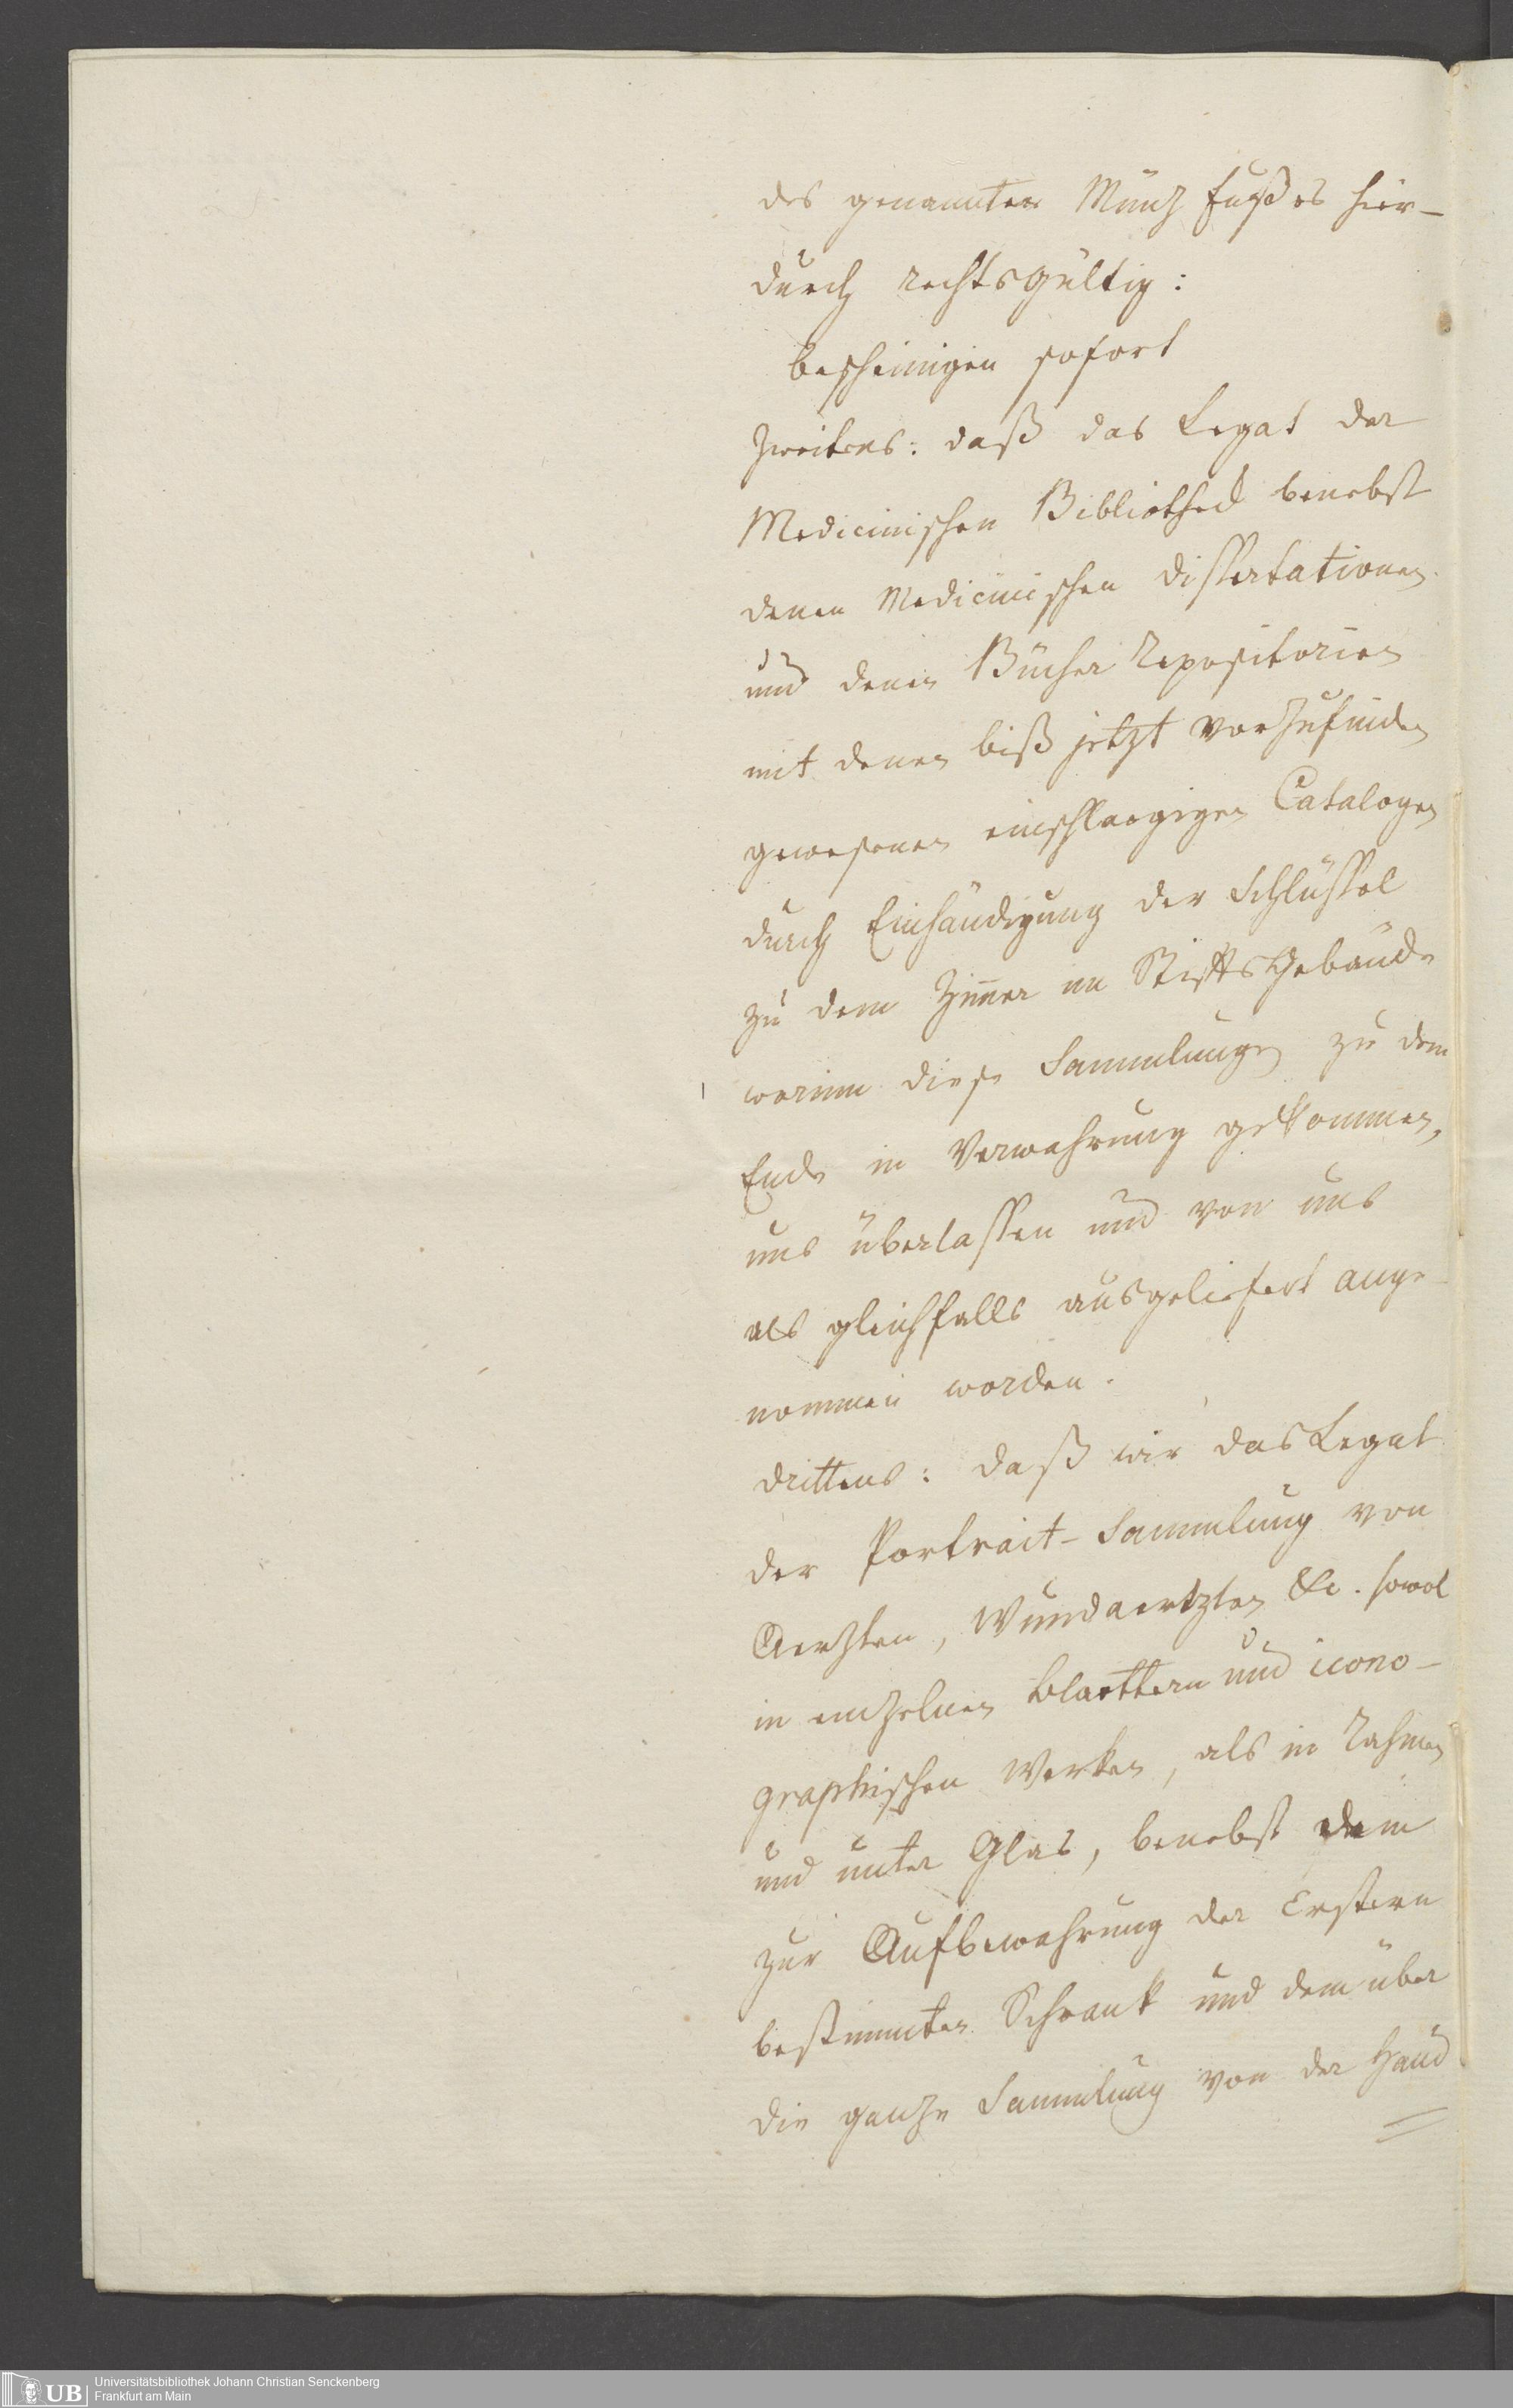 des genannten Münz Fußes hier-
durch rechtsgültig:
bescheinigen sofort
Zweitens: daß das Legat der
Medicinischen Bibliotheck benebst
denen Medicinischen Dissertationen
und denen Bücher Repositorien
mit denen biß jetzt vorzufinden
gewesenen einschlaegigen Catalogen
durch Einhändigung der Schlüssel
zu dem Zimer im StifftsGebäude
worinn diese Sammlungen zu dem
Ende in Verwahrung gekommen,
uns überlassen und von uns
als gleichfalls ausgeliefert ange-
nommen worden.
drittens: daß wir das Legat
der Portrait-Sammlung von
Aerzten, Wundaertzten &c. sowol
in einzelnen Blaettern und icono-
graphischen Werken, als in Rahmen
und unter Glas, benebst dem
zur Aufbewahrung der Erstern
bestimmten Schrank und dem über
die ganze Sammlung von der Hand
UB
Universitätsbibliothek Johann Christian Senckenberg
Frankfurt am Main